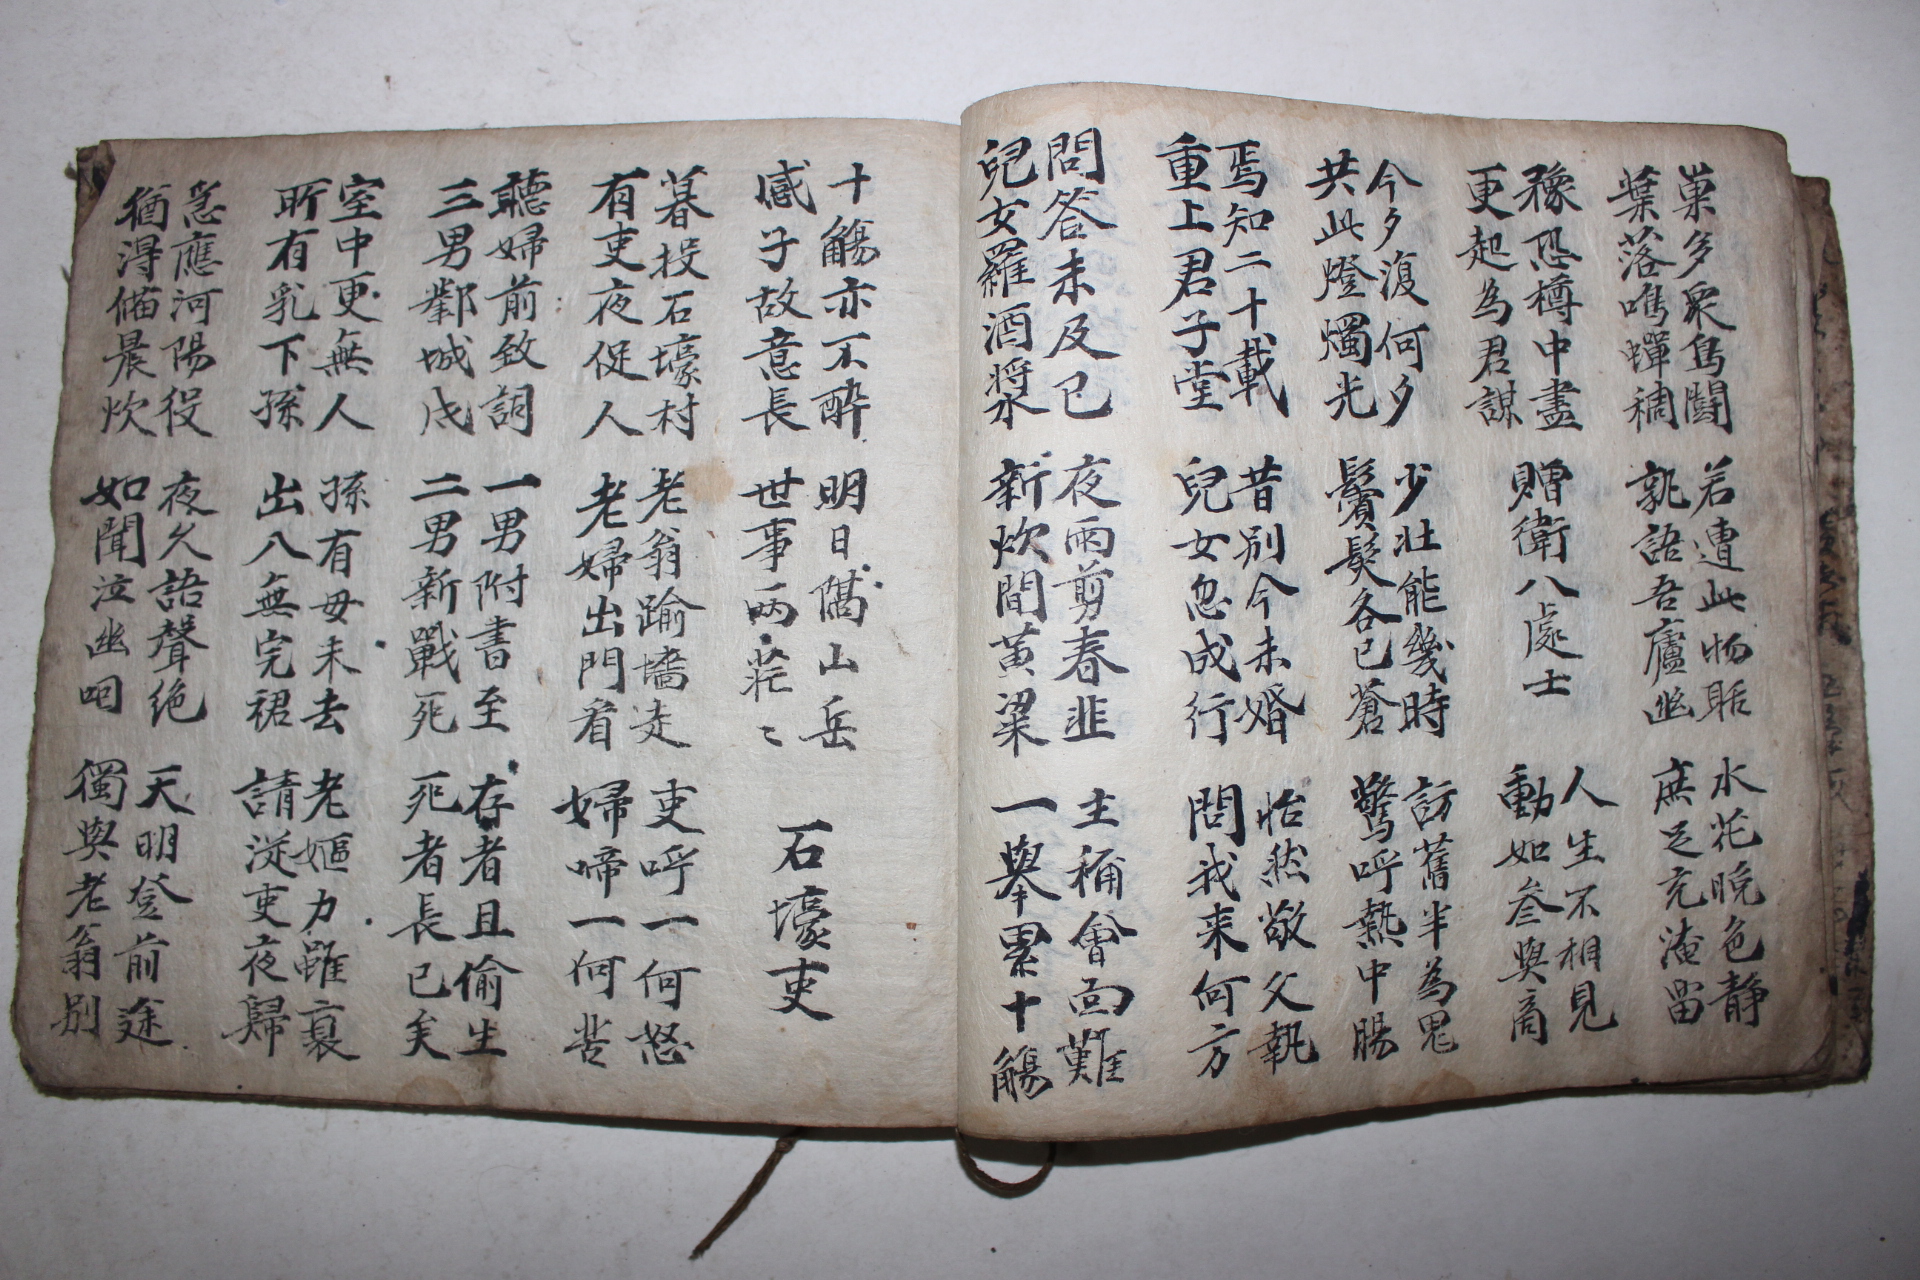 巢多衆鳥鬪
葉落鳴蟬稠
若遭此物聒
孰語吾廬幽
水花晚色静
庶足充淹留
豫恐樽中盡
更起為君謀
贈衛八處士
人生不相見
動如參與商
今夕復何夕
共此燈燭光
少壯能幾時
鬢髮各已蒼
訪舊半為鬼
驚呼熱中腸
焉知二十載
重上君子堂
昔別今未婚
兒女忽成行
怡然敬父執
問我来何方
問答未及已
兒女羅酒漿
夜雨剪春韭
新炊間黃粱
主稱會面難
一舉累十觴
十觴亦不醉
感子故意長
明日隔山岳
世事兩茫〻
石壕吏
暮投石壕村
有吏夜促人
老翁踰墻走
老婦出門看
吏呼一何怒
婦啼一何苦
聽婦前致詞
三男鄴城戍
一男附書至
二男新戰死
存者且偷生
死者長已矣
室中更無人
所有乳下孫
孫有母未去
出入無完裙
老嫗力雖衰
請從吏夜歸
急應河陽役
猶得備晨炊
夜久語聲絶
如聞泣幽咽
天明登前途
獨與老翁別